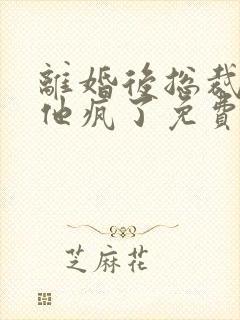 離婚後总裁
他疯了免費
芝麻花